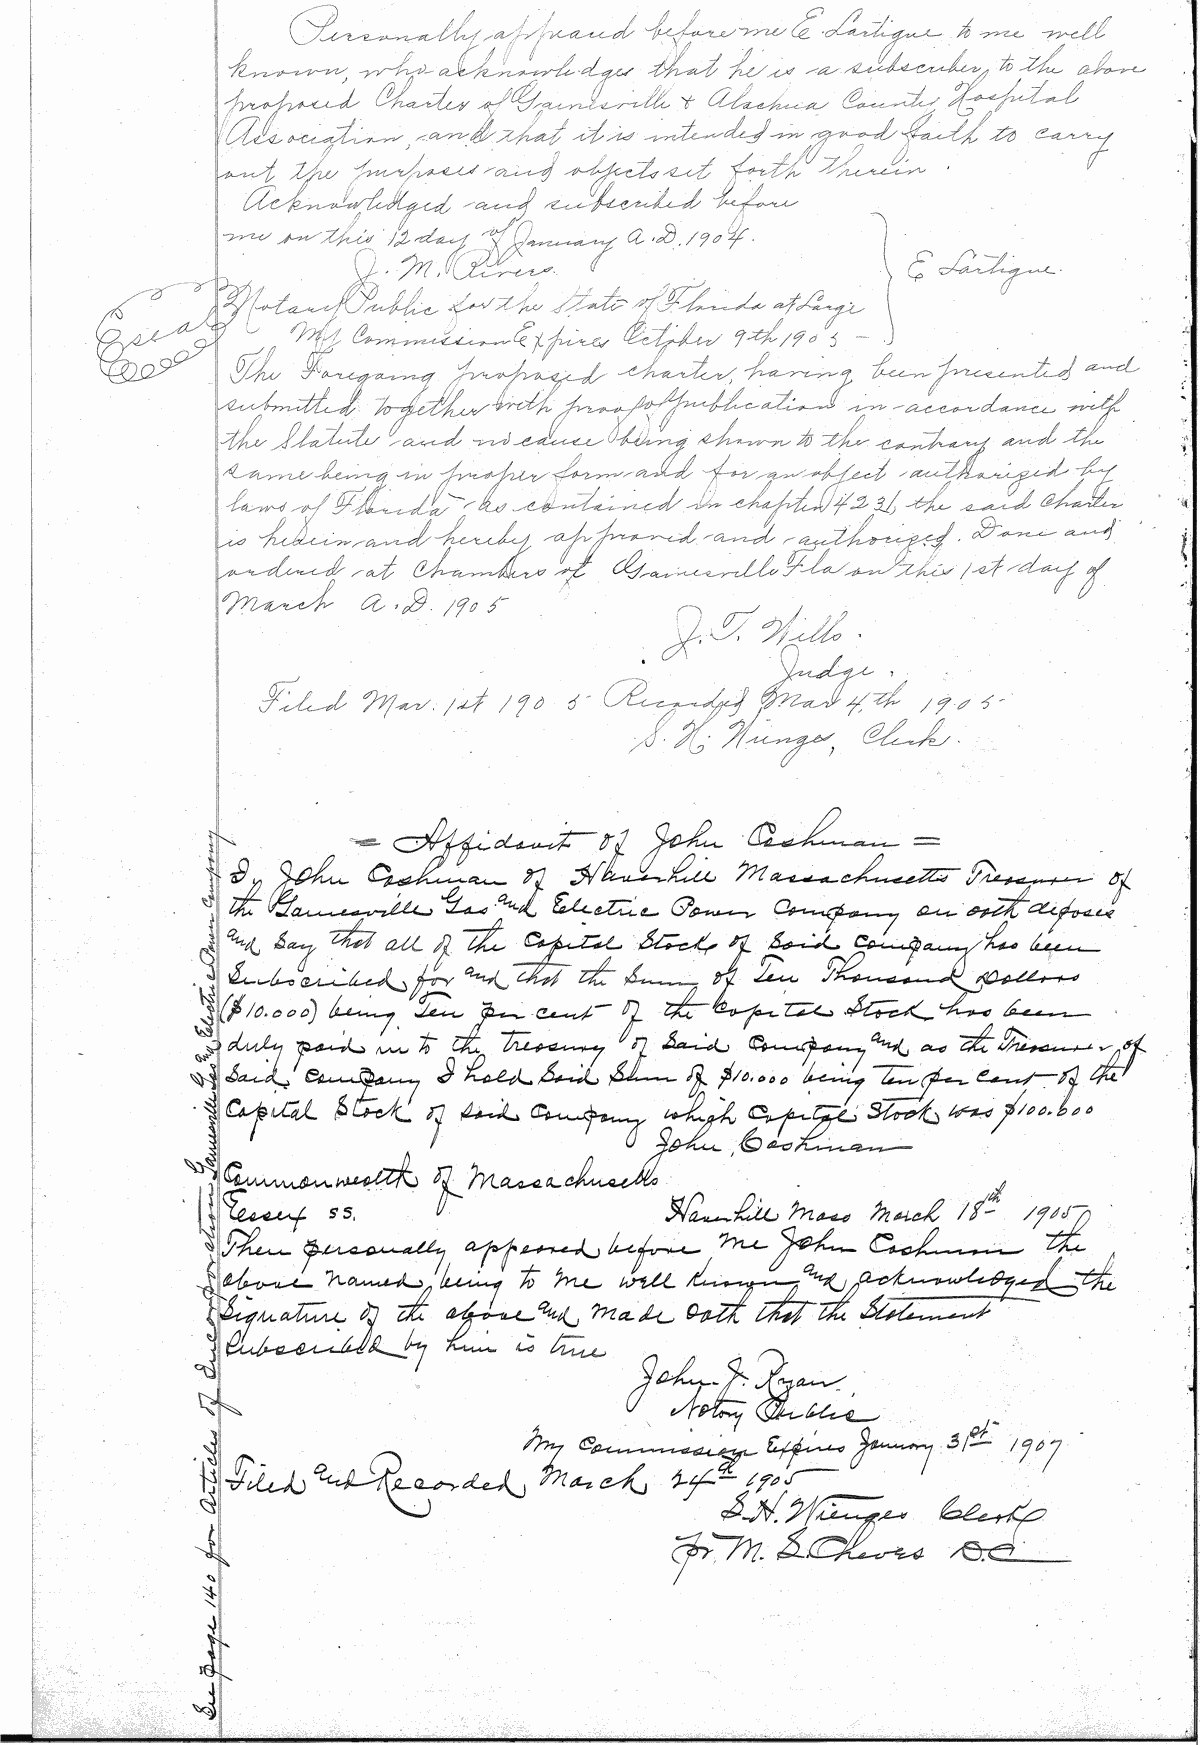 Personally appeared before me E. Lartigue to me well
known, who acknowledges that he is a subscriber, to the above
proposed Charter of Gainesville & Alachua County Hospital
Association, and that it is intended in good faith to carry
out the purposes and objects set forth therein.
Acknowledged and subscribed before
me on this 12 day of January A.D. 1904.
E Lartigue.
J. M. Rivers.
Notary Public for the State of Florida at Large
Seal
My Commission Expires October 9th 1905 -
The Foregoing proposed charter, having been presented and
submitted together with proof of publication in accordance with
the Statute and no cause being shown to the contrary and the
same being in proper form and for an object authorized by
laws of Florida as contained in chapter 4231, the said Charter
is herein and hereby approved and authorized. Done and
ordered at Chambers at Gainesville Fla on this 1st day of
March A.D. 1905
J. T. Wills.
Judge.
Filed Mar. 1st 1905 Recorded Mar 4th 1905
S. H. Wienges, Clerk.
= Affidavit of John Cashman =
I, John Cashman of Haverhill Massachusetts Treasurer of
the Gainesville Gas and Electric Power Company on oath deposes
and say that all of the Capital Stock of said Company has been
Subscribed for and that the Sum of Ten Thousand Dollars
($10.000) being Ten per cent of the Capital Stock has been
duly paid in to the treasury of Said Company and as the Treasurer of
Said Company I hold Said Sum of $10.000 being ten per cent of the
Capital Stock of said Company which Capital Stock was $100.000
John Cashman
Commonwealth of Massachusetts
Essex ss.   Haverhill Mass March 18th 1905
Then personally appeared before me John Cashman the
above named, being to me well known and acknowledged the
Signature of the above and made oath that the Statement
Subscribed by him is true
John J. Ryan.
Notary Public
My Commission Expires January 31st 1907
Filed and Recorded March 24th 1905
S. H. Wienges Clerk
pr. M. S. Cheves D.C.
See Page 140 for Articles of Incorporation Gainesville Gas and Electric Power Company